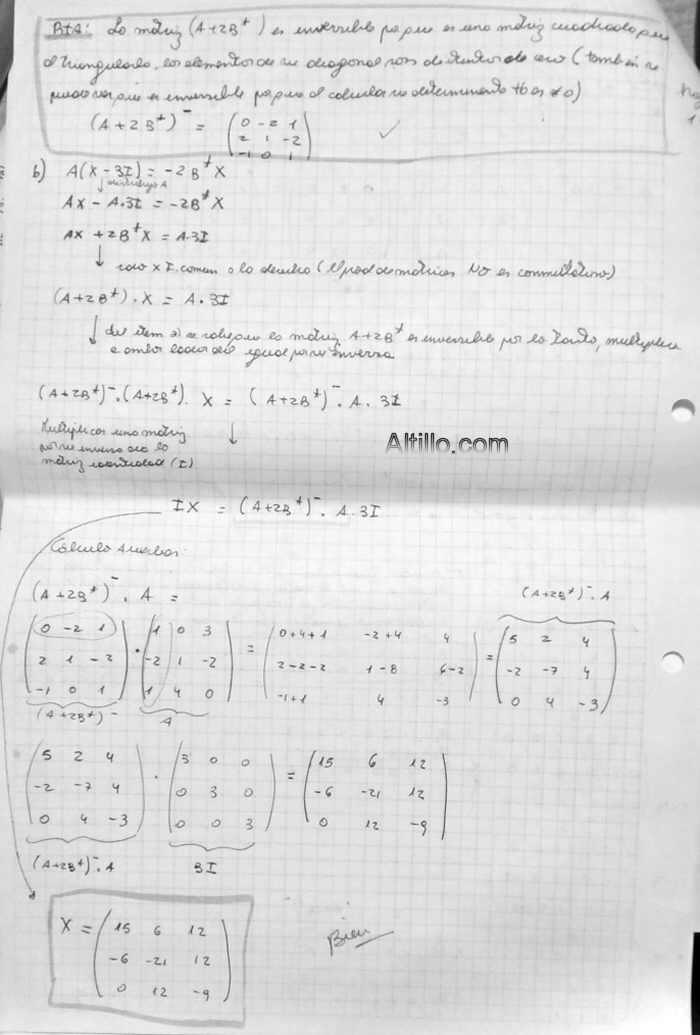 Rta: La matriz (A+2Bᵗ) es inversible porque es una matriz cuadrada que
al triangularla, los elementos de su diagonal son distintos de cero (también se
puede ver que es inversible porque al calcular su determinante tb es ≠0)
(A+2Bᵗ)⁻ = (0 -2 1
2 1 -2
-1 0 1)
b) A(X-3I) = -2BᵗX
↓ distribuyo A
AX - A.3I = -2BᵗX
AX + 2BᵗX = A.3I
↓ saco x F. comun a la derecha (El prod de matrices NO es conmutativo)
(A+2Bᵗ).X = A.3I
↓ Del item a) se sabe que la matriz A+2Bᵗ es inversible por lo tanto, multiplico
a ambos lados del igual por su inversa
(A+2Bᵗ)⁻.(A+2Bᵗ). X = (A+2Bᵗ)⁻. A. 3I
Multiplicar una matriz ↓
por su inversa da la
matriz identidad (I)
Altillo.com
IX = (A+2Bᵗ)⁻. A.3I
Cálculo Auxiliar:
(A+2Bᵗ)⁻. A =
(A+2Bᵗ)⁻. A
(0 -2 1) . (1 0 3) = (0+4+1 -2+4 4) = (5 2 4)
(2 1 -2) (-2 1 -2) (2-2-2 1-8 6-2) (-2 -7 4)
(-1 0 1) (1 4 0) (-1+1 4 -3) (0 4 -3)
(A+2Bᵗ)⁻ A
(5 2 4) . (3 0 0) = (15 6 12)
(-2 -7 4) (0 3 0) (-6 -21 12)
(0 4 -3) (0 0 3) (0 12 -9)
(A+2Bᵗ)⁻. A 3I
X = (15 6 12
-6 -21 12
0 12 -9)
Bien